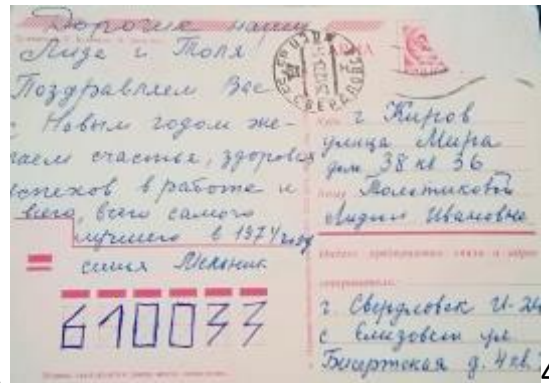 Дорогие наши
Лида и Толя
Поздравляем Вас
с Новым годом же-
лаем счастья, здоровья
успехов в работе и
всего, всего самого
лучшего в 1974 году
семья Мельник
610033
г Киров
улица Мира
дом 38 кв 36
Лидии Ивановне
г. Свердловск И-24
с Елизавет ул
Бисертская д. 4 кв.
СВЕРДЛОВСК
4